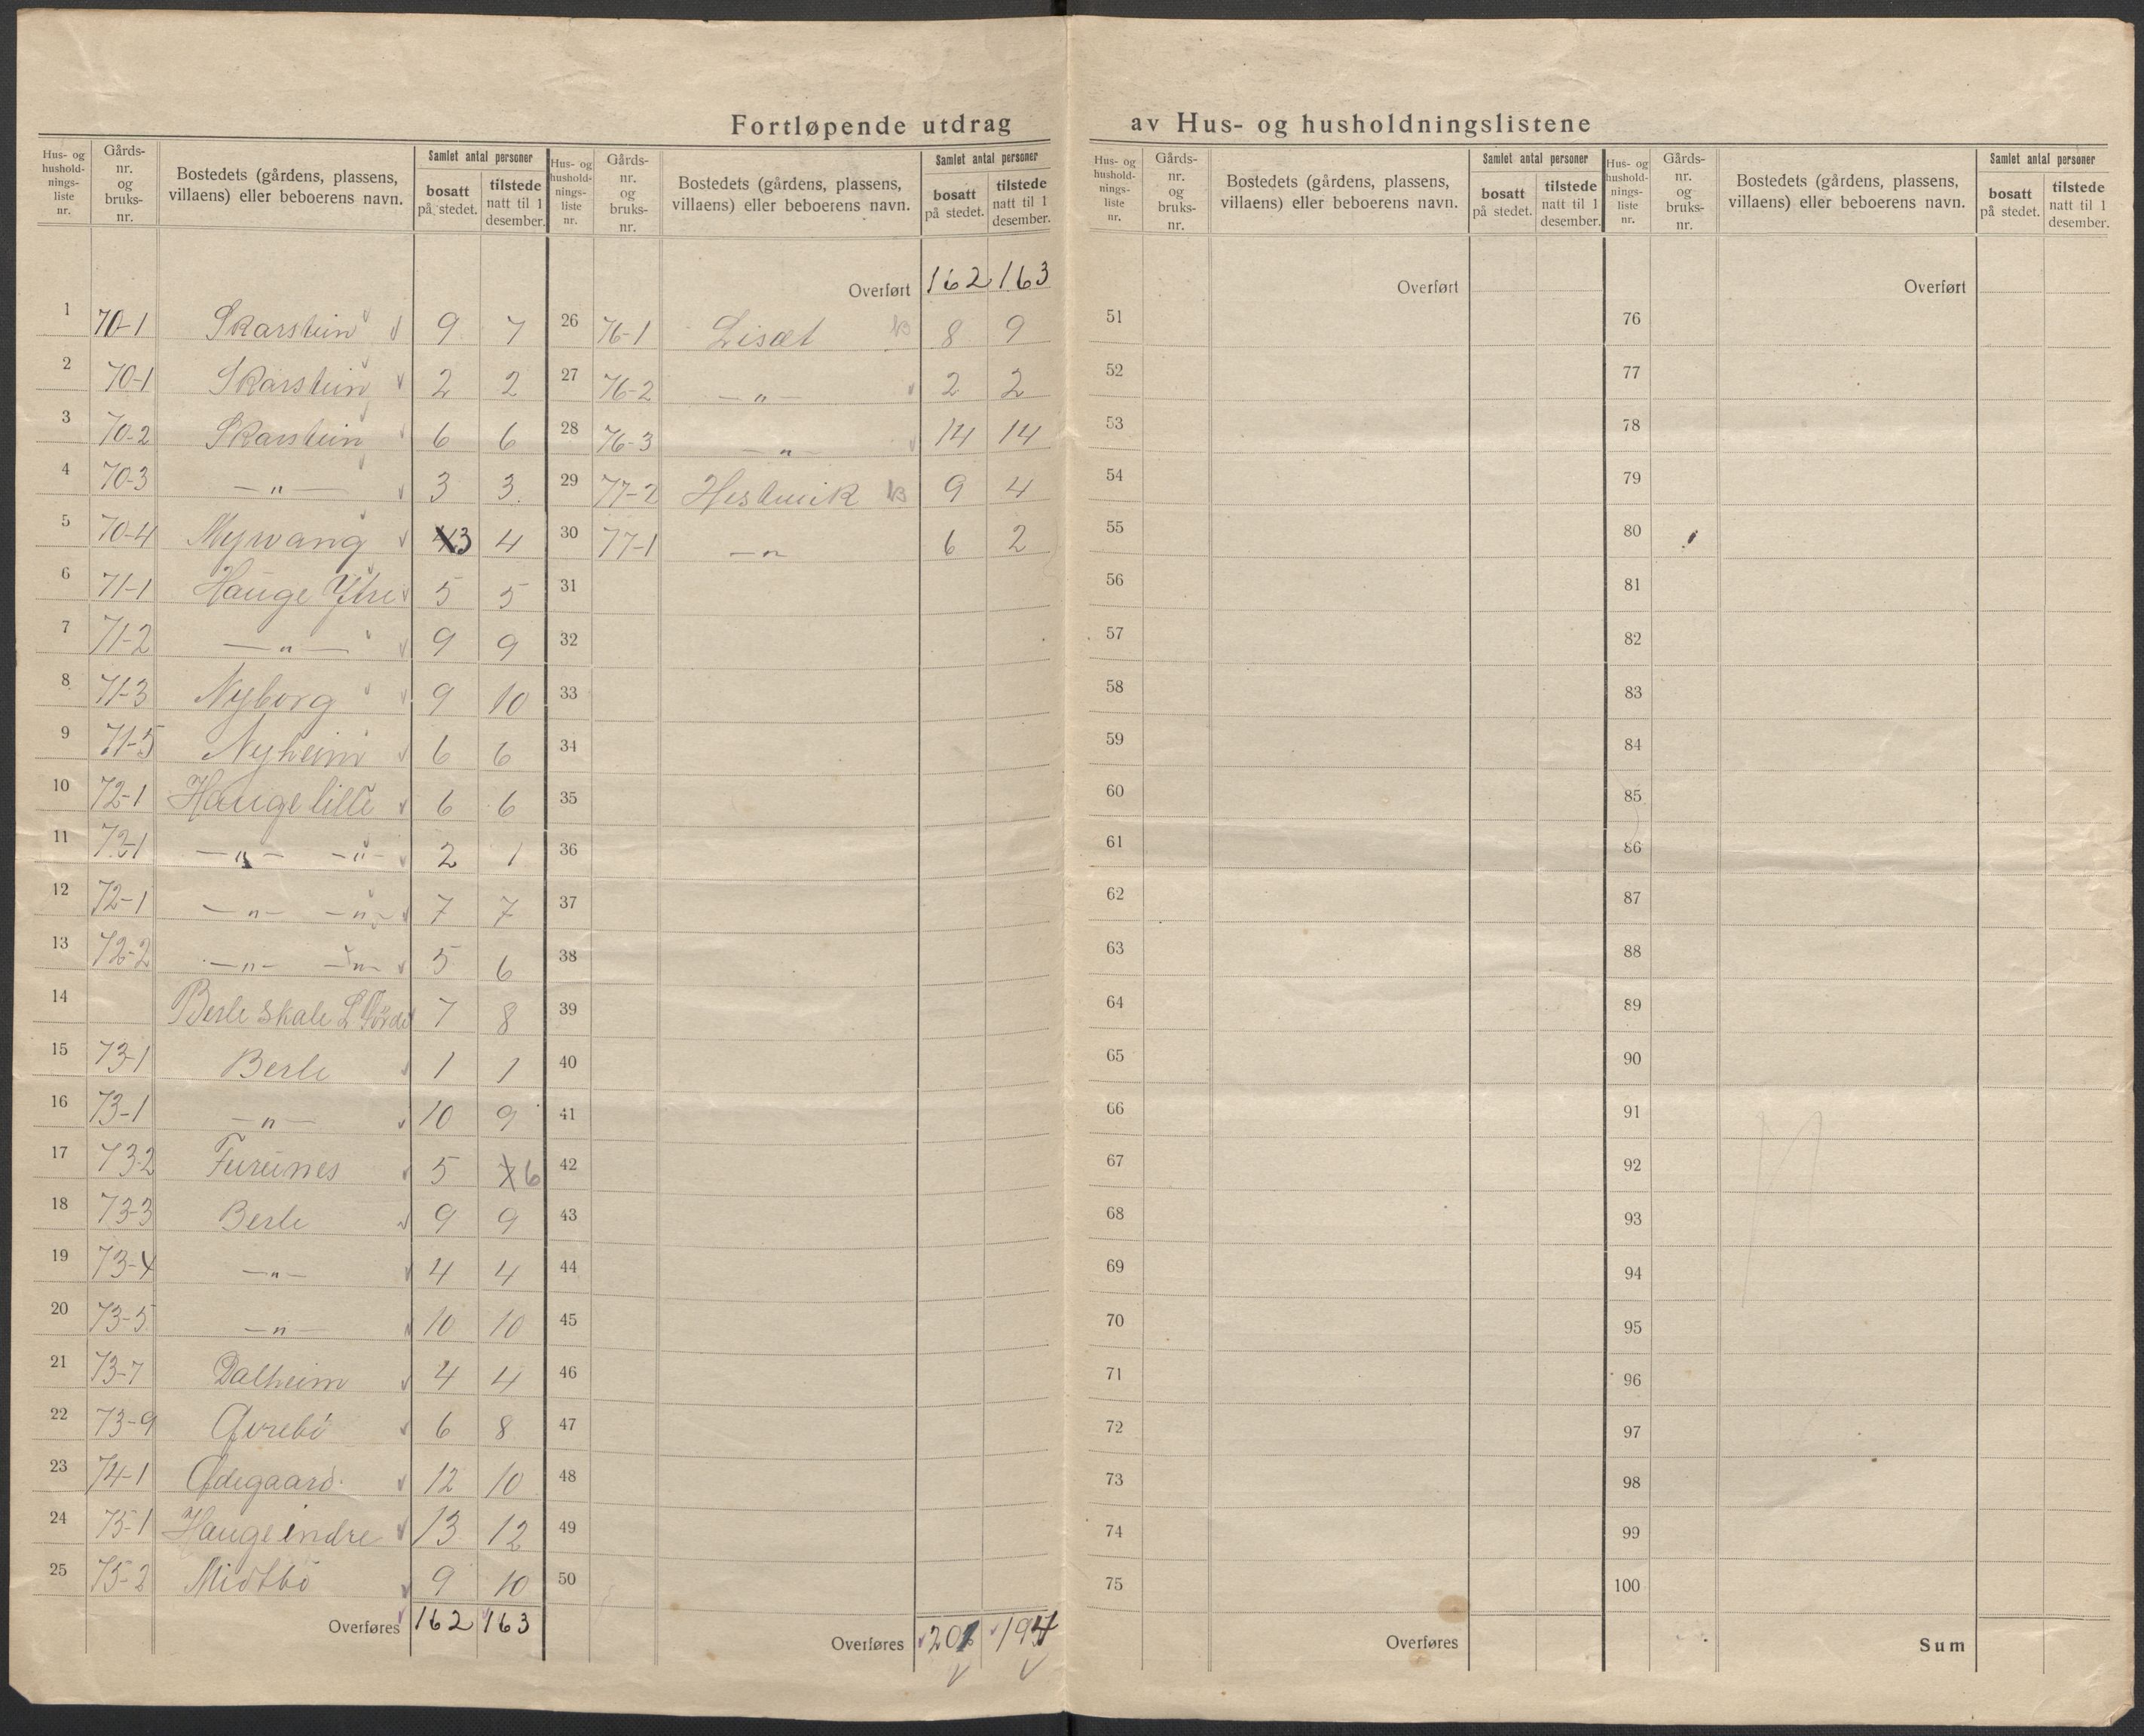 Fortløpende utdrag av Hus- og husholdningslistene
Hus- og husholdnings- liste nr. | Gårds- nr. og bruks- nr. | Bostedets (gårdens, plassens, villaens) eller beboerens navn. | Samlet antal personer | bosatt på stedet. | tilstede natt til 1 desember.
1 70-1 Skarstein 9 7
2 70-1 Skarstein 2 2
3 70-2 Skarstein 6 6
4 70-3 —„— 3 3
5 70-4 Myrvang 3 4
6 71-1 Hauge Ytre 5 5
7 71-2 —„— 9 9
8 71-3 Nyborg 9 10
9 71-5 Nyheim 6 6
10 72-1 Hauge lille 6 6
11 72-1 —„— —„— 2 1
12 72-1 —„— —„— 7 7
13 72-2 —„— —„— 5 6
14 Berle Skole 7 8
15 73-1 Berle 1 1
16 73-1 —„— 10 9
17 73-2 Furunes 5 6
18 73-3 Berle 9 9
19 73-4 —„— 4 4
20 73-5 —„— 10 10
21 73-7 Dalheim 4 4
22 73-9 Øvrebö 6 8
23 74-1 Ødegaard 12 10
24 75-1 Hauge indre 13 12
25 75-2 Midtbö 9 10
Overføres 162 163
Hus- og hushold- nings- liste nr. | Gårds- nr. og bruks- nr. | Bostedets (gårdens, plassens, villaens) eller beboerens navn. | Samlet antal personer | bosatt på stedet. | tilstede natt til 1 desember.
Overført 162 163
26 76-1 Lisæt B 8 9
27 76-2 —„— 2 2
28 76-3 —„— 14 14
29 77-2 Hestevik B 9 4
30 77-1 —„— 6 2
31
32
33
34
35
36
37
38
39
40
41
42
43
44
45
46
47
48
49
50
Overføres 201 194
Hus- og hushold- nings- liste nr. | Gårds- nr. og bruks- nr. | Bostedets (gårdens, plassens, villaens) eller beboerens navn. | Samlet antal personer | bosatt på stedet. | tilstede natt til 1 desember.
Overført
51
52
53
54
55
56
57
58
59
60
61
62
63
64
65
66
67
68
69
70
71
72
73
74
75
Overføres
Hus- og hushold- nings- liste nr. | Gårds- nr. og bruks- nr. | Bostedets (gårdens, plassens, villaens) eller beboerens navn. | Samlet antal personer | bosatt på stedet. | tilstede natt til 1 desember.
Overført
76
77
78
79
80
81
82
83
84
85
86
87
88
89
90
91
92
93
94
95
96
97
98
99
100
Sum